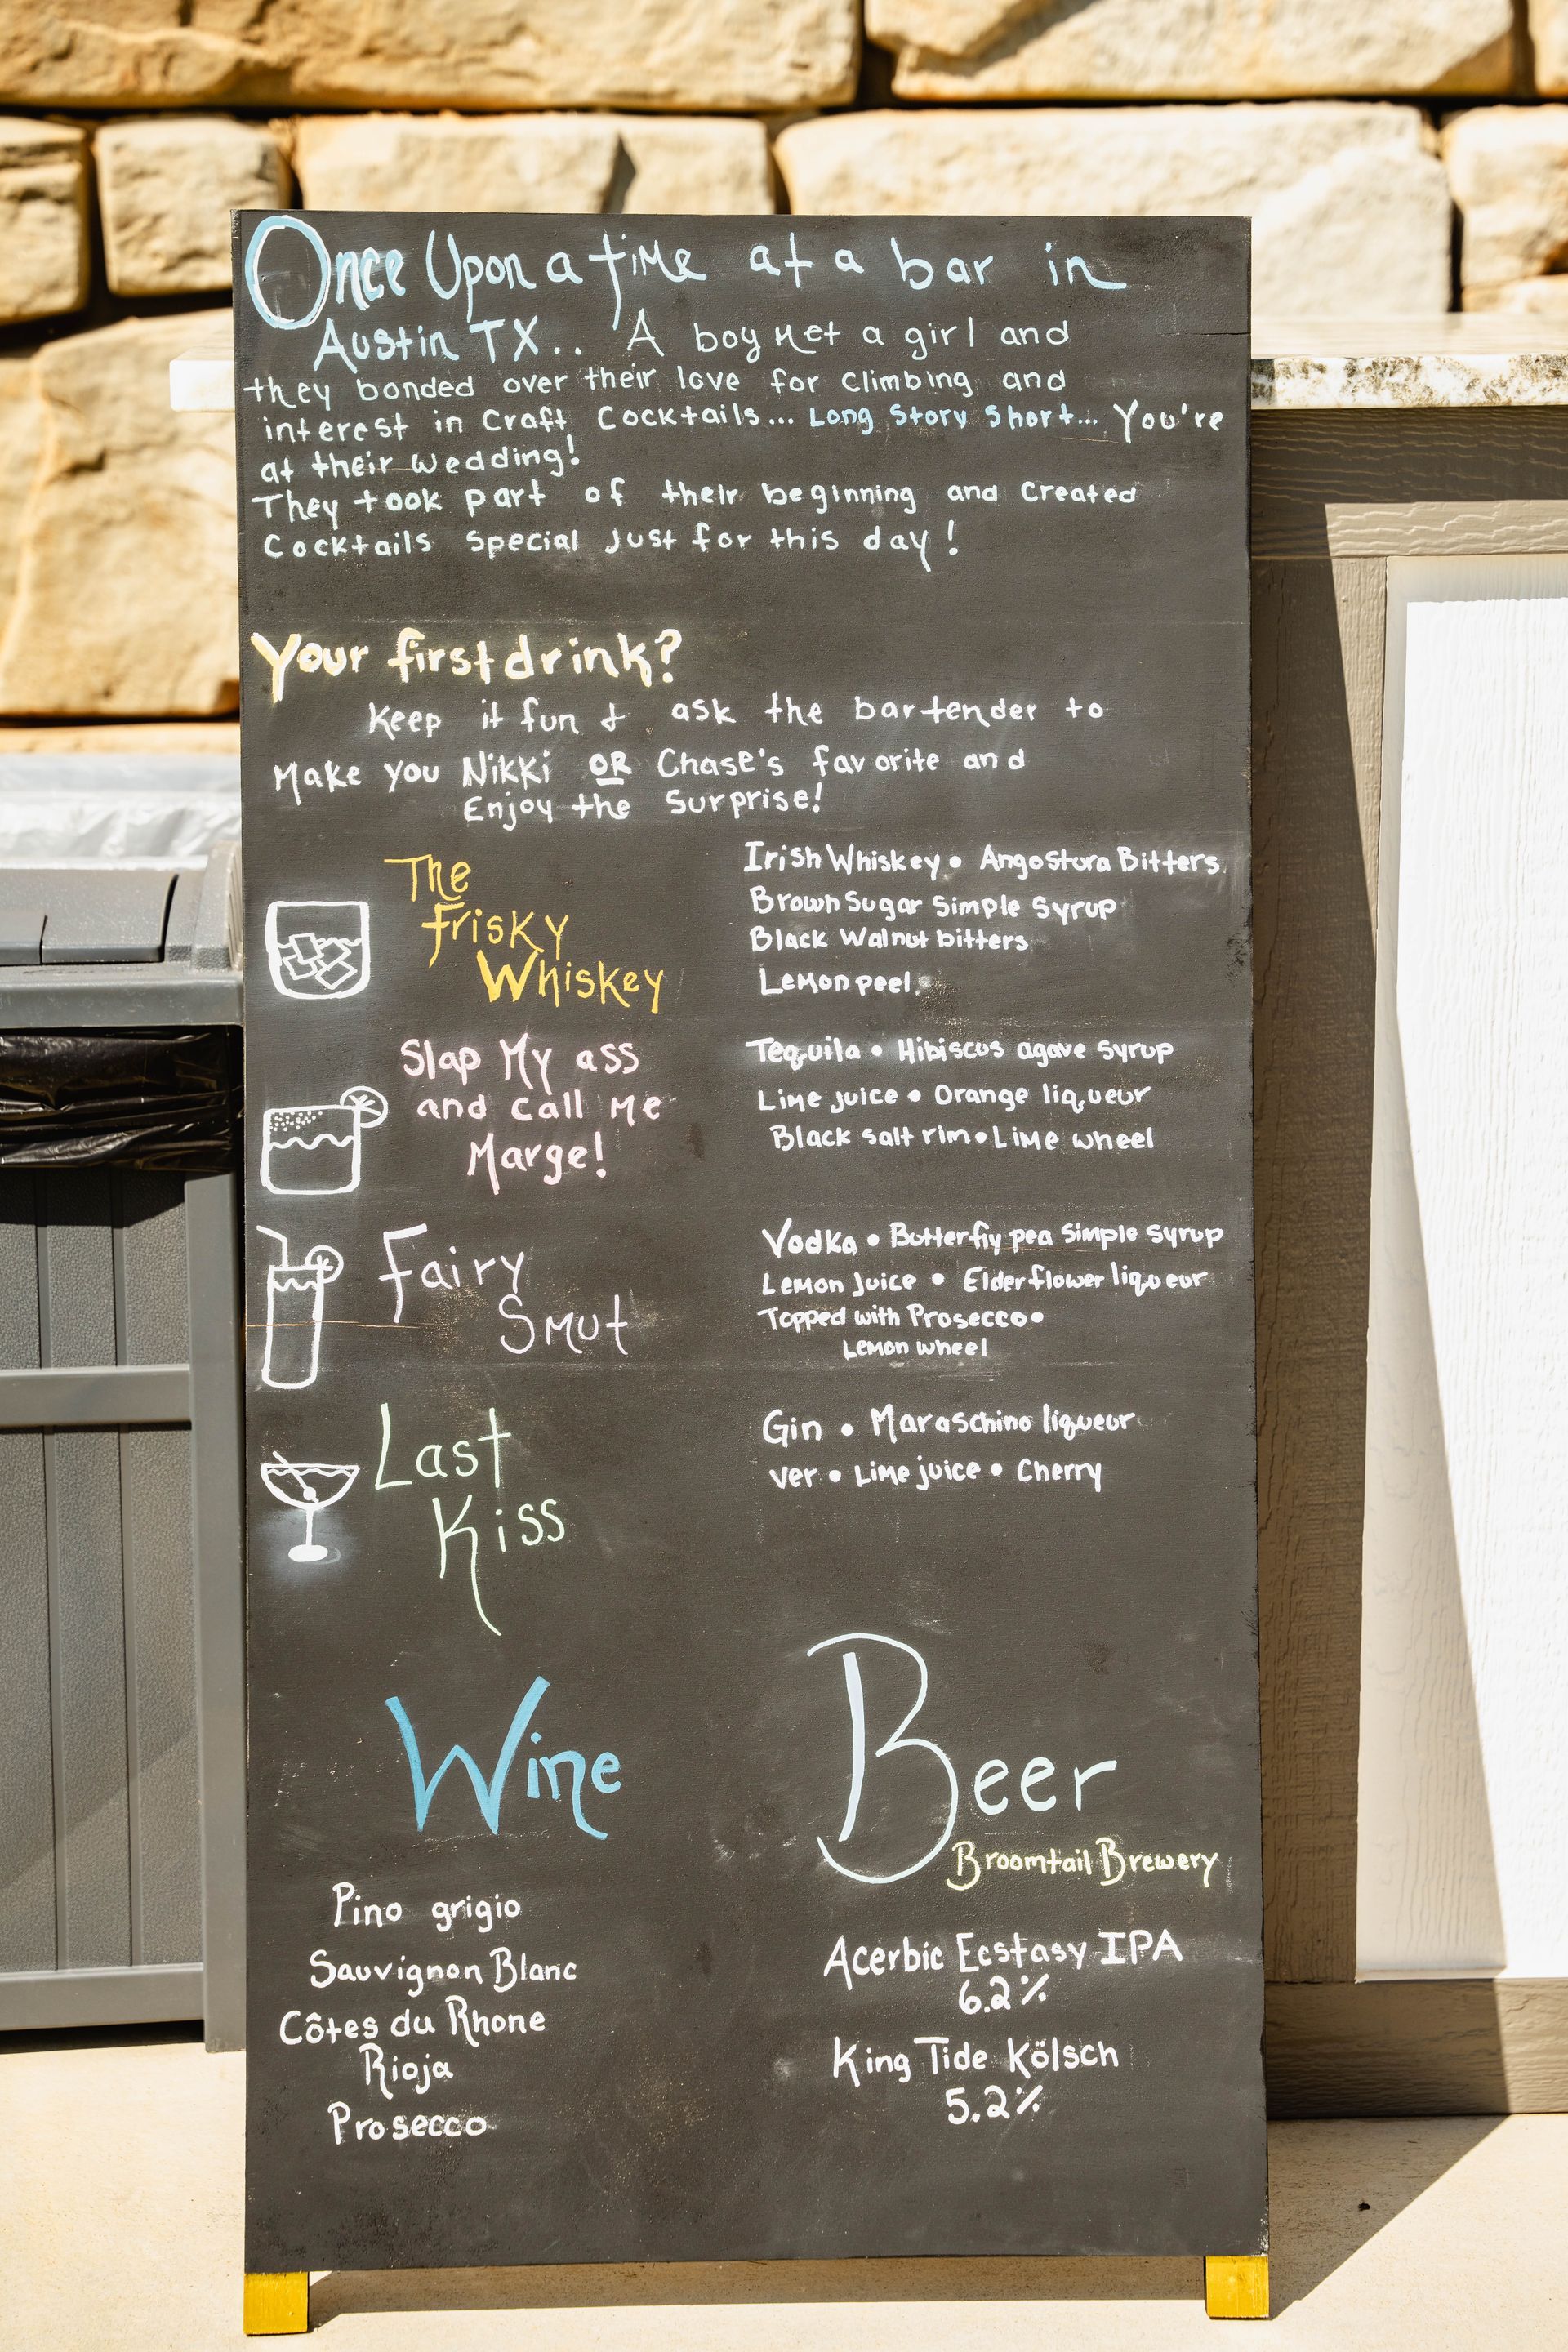 Once Upon a time at a bar in
Austin TX.. A boy met a girl and
they bonded over their love for climbing and
interest in Craft Cocktails... Long Story Short... You're
at their wedding!
They took part of their beginning and created
Cocktails special Just for this day!
Your first drink?
Keep it fun & ask the bartender to
Make you Nikki OR Chase's favorite and
Enjoy the Surprise!
The
Frisky
Whiskey
Irish Whiskey • Angostura Bitters
Brown Sugar Simple Syrup
Black Walnut bitters
Lemon peel.
Slap My ass
and call Me
Marge!
Tequila • Hibiscus agave syrup
Lime juice • Orange liqueur
Black salt rim • Lime wheel
Fairy
Smut
Vodka • Butterfly pea Simple syrup
Lemon Juice • Elderflower liqueur
Topped with Prosecco •
Lemon wheel
Last
Kiss
Gin • Maraschino liqueur
ver • Lime juice • Cherry
Wine
Pino grigio
Sauvignon Blanc
Côtes du Rhone
Rioja
Prosecco
Beer
Broomtail Brewery
Acerbic Ecstasy IPA
6.2%
King Tide Kölsch
5.2%